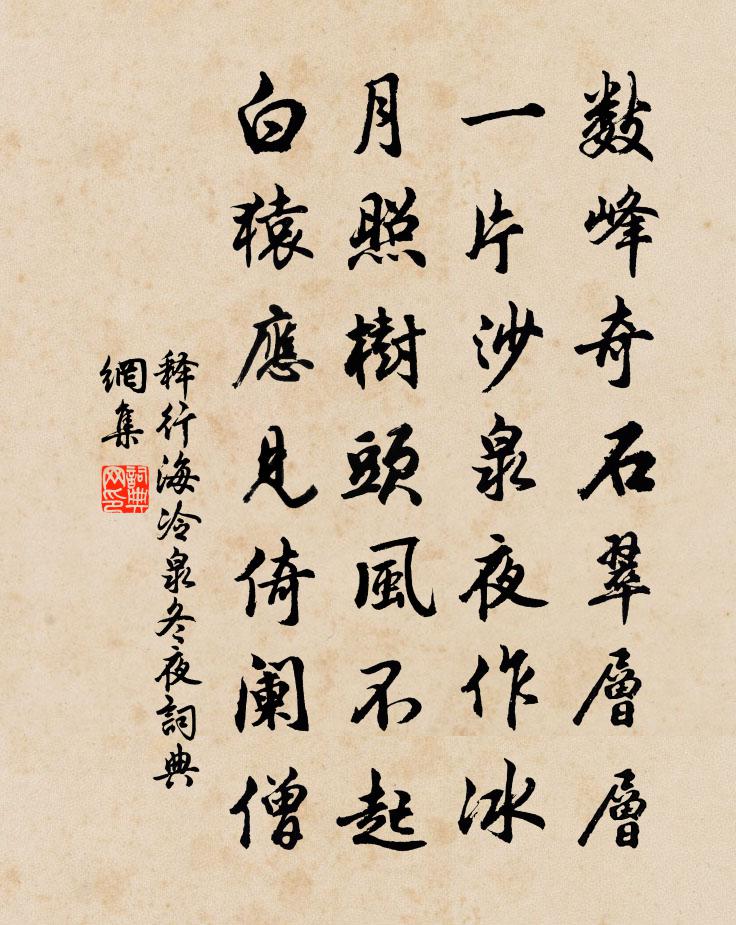 数峰奇石翠層層
一片沙泉夜作冰
月照樹頭風不起
白猿應見倚闌僧
释行海冷泉冬夜詞典
網集
詞典
网印